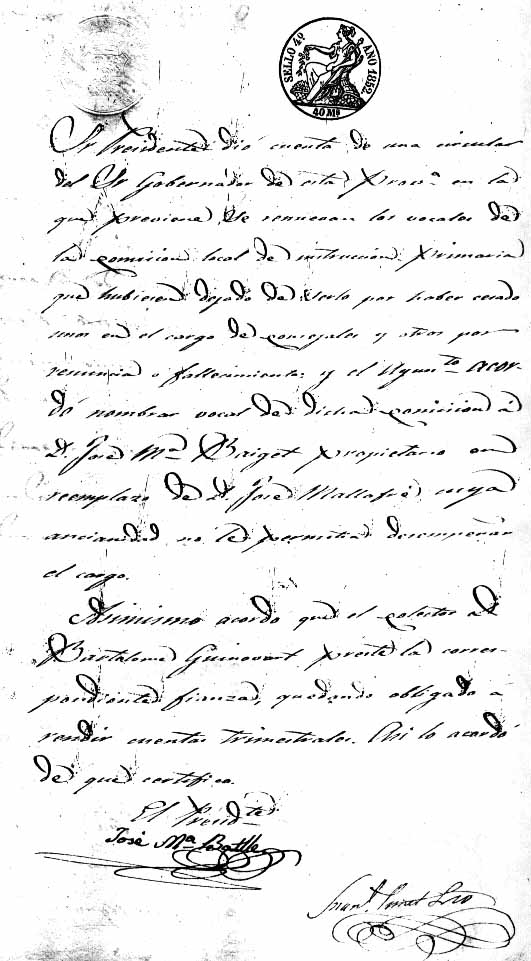 SELLO 4º AÑO 1852.
40 Ms
Sr Presidente dió cuenta de una circular
del Sr Gobernador de esta Provª en la
que previene, se renueven los vocales de
la comision local de instruccion primaria
que hubiesen dejado de serlo por haber cesado
unos en el cargo de concejales y otros por
renuncia o fallecimiento: y el Ayunto acor-
dó nombrar vocal de dicha comicion á
D. José Mª Baiget propietario en
reemplazo de D. José Mallafré cuya
ancianidad no le permitia desempeñar
el cargo.
Asimismo acordo que el colector
Bartolome Guinovart preste la corres-
pondiente fianza, quedando obligado a
rendir cuentas trimestrales. Asi lo acordó
de que certifico.
El Presidte
José Mª Batlle
Srio